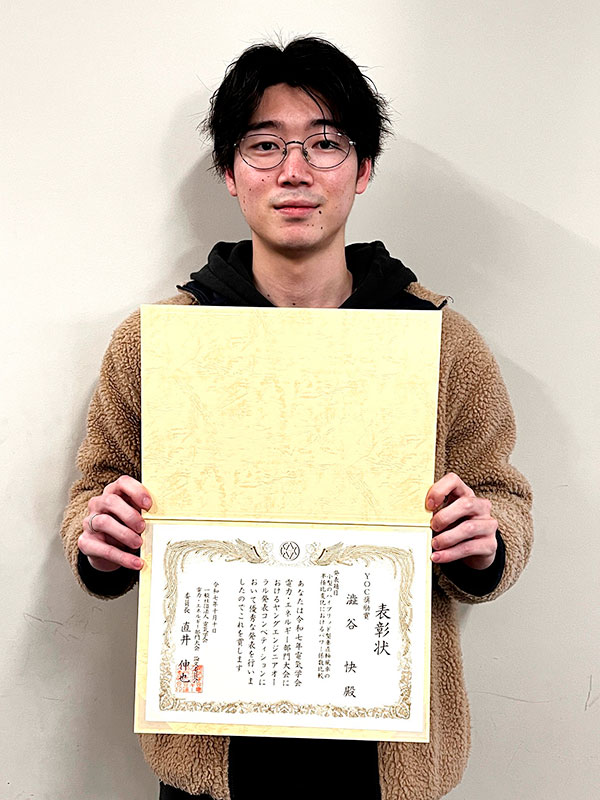 表彰状
YOC奨励賞
澁谷 快 殿
発表題目
小型のハイブリッド型垂直軸風車の
半径比変化におけるパワー係数比較
あなたは令和七年電気学会
電力・エネルギー部門大会に
おけるヤングエンジニアオー
ラル発表コンペティションに
おいて優秀な発表を行いま
したのでこれを賞します
令和七年十月十日
一般社団法人 電気学会
電力・エネルギー部門大会
委員長 直井 伸也